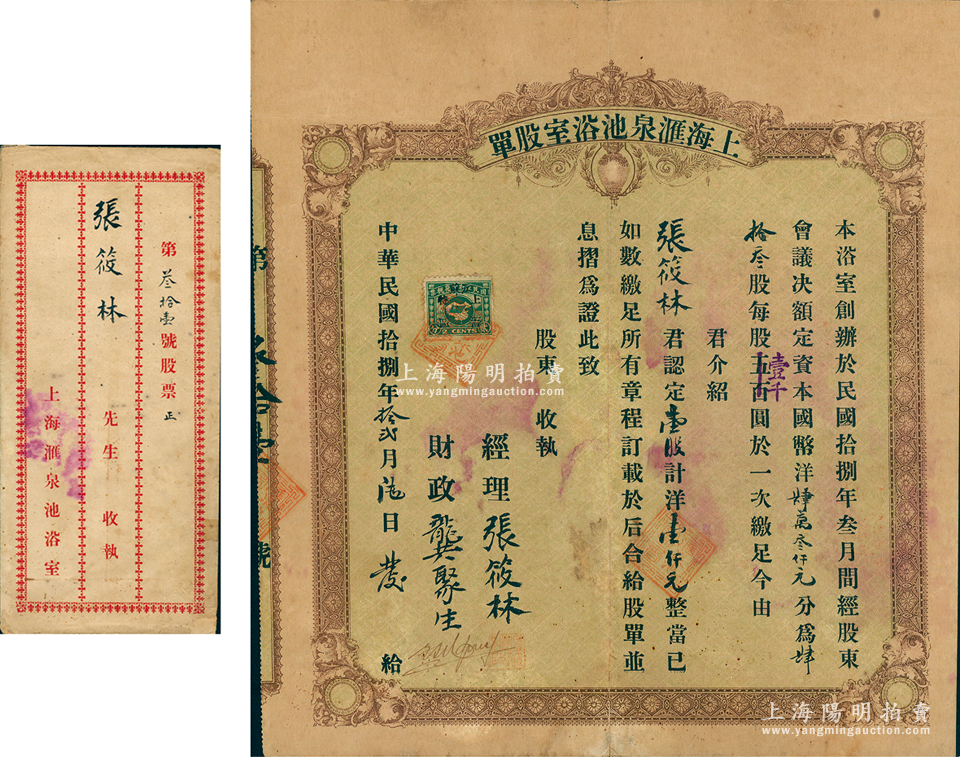 張筱林
先生 收執
第叁拾壹號股票 正
上海滙泉池浴室
上海滙泉池浴室股單
本浴室創辦於民國拾捌年叁月間經股東
會議決額定資本國幣洋肆萬叁仟元分爲肆
拾叁股每股五百圓於一次繳足今由
壹千
君介紹
張筱林君認定壹股計洋壹仟元整當已
如數繳足所有章程訂載於后合給股單並
息摺爲證此致
股東 收執
經理 張筱林
財政 龔聚生
中華民國拾捌年拾弍月 日 給
第
號
2 CENTS
上海陽明拍賣
www.yangmingauction.com
上海陽明拍賣
www.yangmingauction.com